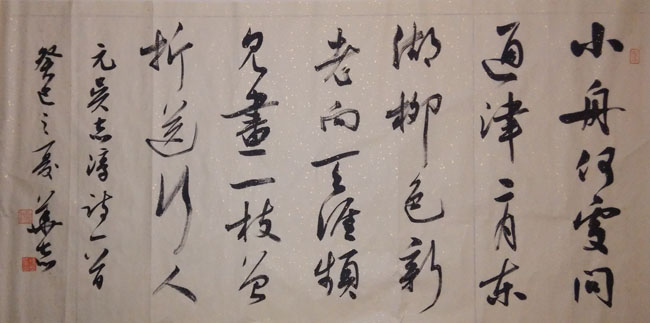 小舟何处问
通津二月东
湖柳色新
老向天涯频
见画一枝曾
折送行人
元吴志淳诗一首
癸巳之夏华志